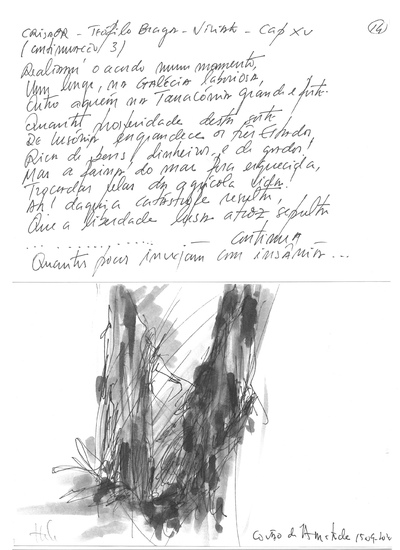 CRISAOR - Teófilo Braga - Viriato - Cap XV
(continuação / 3)
14
Realizam o acordo num momento,
Um longe, na GALÉCIA laboriosa,
Outro aquém na Tarracónia grande e forte.
Quanta prosperidade desta sorte
De Lusónia engrandece os três Estados,
Rica de bens! dinheiro e de gados!
Mas a faina do mar fora esquecida,
Trocada pela da agrícola vida!
Ah! daqui a catástrofe resulta,
Que a liberdade lusa atroz sepulta
................... continua
Quantos povos invejam com insânia...
Couço da Ametade